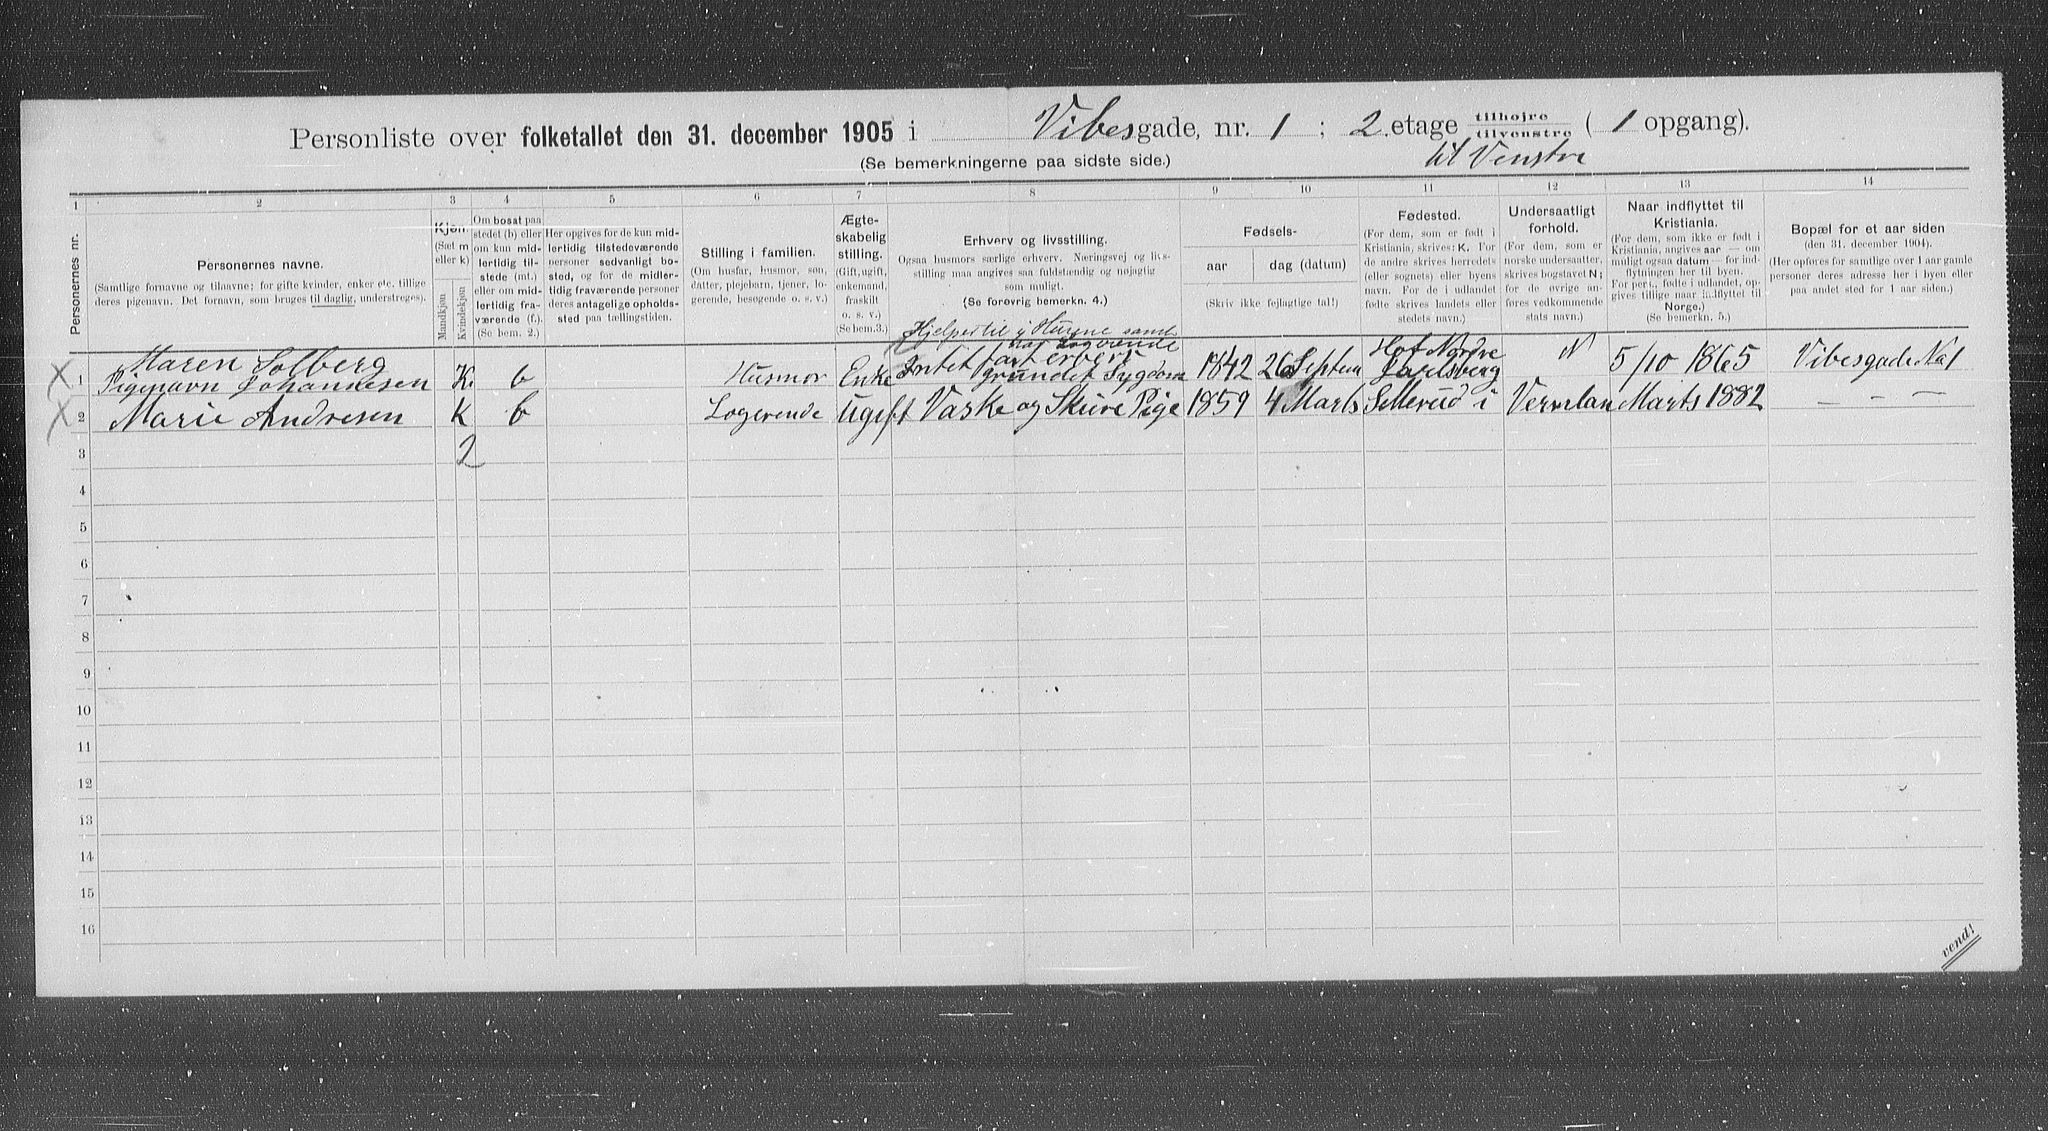 Personliste over folketallet den 31. december 1905 i Vibesgade, nr. 1 ; 2 etage tilhøjre tilvenstre ( 1 opgang).
(Se bemerkningerne paa sidste side.) til Venstre
1 2 3 4 5 6 7 8 9 10 11 12 13 14
Personernes nr.
Personernes navne.
(Samtlige fornavne og tilnavne; for gifte kvinder, enker etc. tillige
deres pigenavn. Det fornavn, som bruges til daglig, understreges).
Kjøn.
(Sæt m
eller k)
Mandkjøn
Kvindekjøn
Om bosat paa
stedet (b) eller
om kun mid-
lertidig til-
stede (mt.)
eller om mid-
lertidig fra-
værende (f.).
(Se bem. 2.)
Her opgives for de kun mid-
lertidig tilstedeværende
personer sedvanligt bo-
sted, og for de midler-
tidig fraværende personer
deres antagelige opholds-
sted paa tællingstiden.
Stilling i familien.
(Om husfar, husmor, søn,
datter, plejebarn, tjener, lo-
gerende, besøgende o. s. v.)
Ægte-
skabelig
stilling.
(Gift, ugift,
enkemand,
fraskilt
o. s. v.)
(Se bem.3.)
Erhverv og livsstilling.
Ogsaa husmors særlige erhverv. Næringsvej og livs-
stilling maa angives saa fuldstændig og nøjagtig
som muligt.
(Se forøvrig bemerkn. 4.)
Fødsels-
aar dag (datum)
(Skriv ikke fejlagtige tal!)
Fødested.
(For dem, som er født i
Kristiania, skrives: K. For
de andre skrives herredets
(eller sognets) eller byens
navn. For de i udlandet
fødte skrives landets eller
stedets navn.)
Undersaatligt
forhold.
(For dem, som er
norske undersaatter,
skrives bogstavet N;
for de øvrige an-
føres vedkommende
stats navn.)
Naar indflyttet til
Kristiania.
(For dem, som ikke er født i
Kristiania, angives aar — om
muligt ogsaa datum — for ind-
flytningen her til byen.
For pers., fødte i udlandet, op-
gives tillige naar indflyttet til
Norge.)
(Se bemerkn. 5.)
Bopæl for et aar siden
(den 31. december 1904).
(Her opføres for samtlige over 1 aar gamle
personer deres adresse her i byen eller
paa andet sted for 1 aar siden.)
Hjelper til i Husene samt
har Logerende
X 1 Maren Solberg
Pigenavn Johannesen K. b Husmor Enke Intet fast erhverv
grundet Sygdom 1842 26 Septem Hof Nordre
Jarlsberg N 5/10 1865 Vibesgade No1
X 2 Marie Andresen K b Logerende Ugift Vaske og Skure Pige 1859 4 Marts Sillerud i Vermlan Marts 1882 — — —
3 2
4
5
6
7
8
9
10
11
12
13
14
15
16
vend!